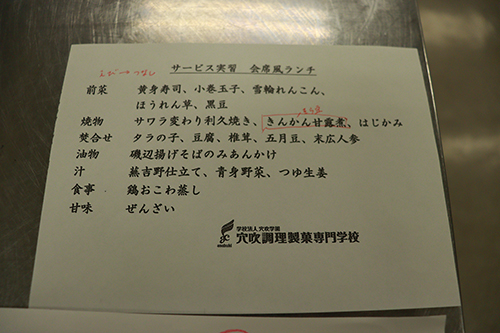 えび→つなし
サービス実習　会席風ランチ
前菜　黄身寿司、小巻玉子、雪輪れんこん、
ほうれん草、黒豆
焼物　サワラ変わり利久焼き、きんかん甘露煮、はじかみ
焚合せ　タラの子、豆腐、椎茸、五月豆、末広人参
油物　磯辺揚げそばのみあんかけ
汁　蕪吉野仕立て、青身野菜、つゆ生姜
食事　鶏おこわ蒸し
甘味　ぜんざい
学校法人 穴吹学園
穴吹調理製菓専門学校